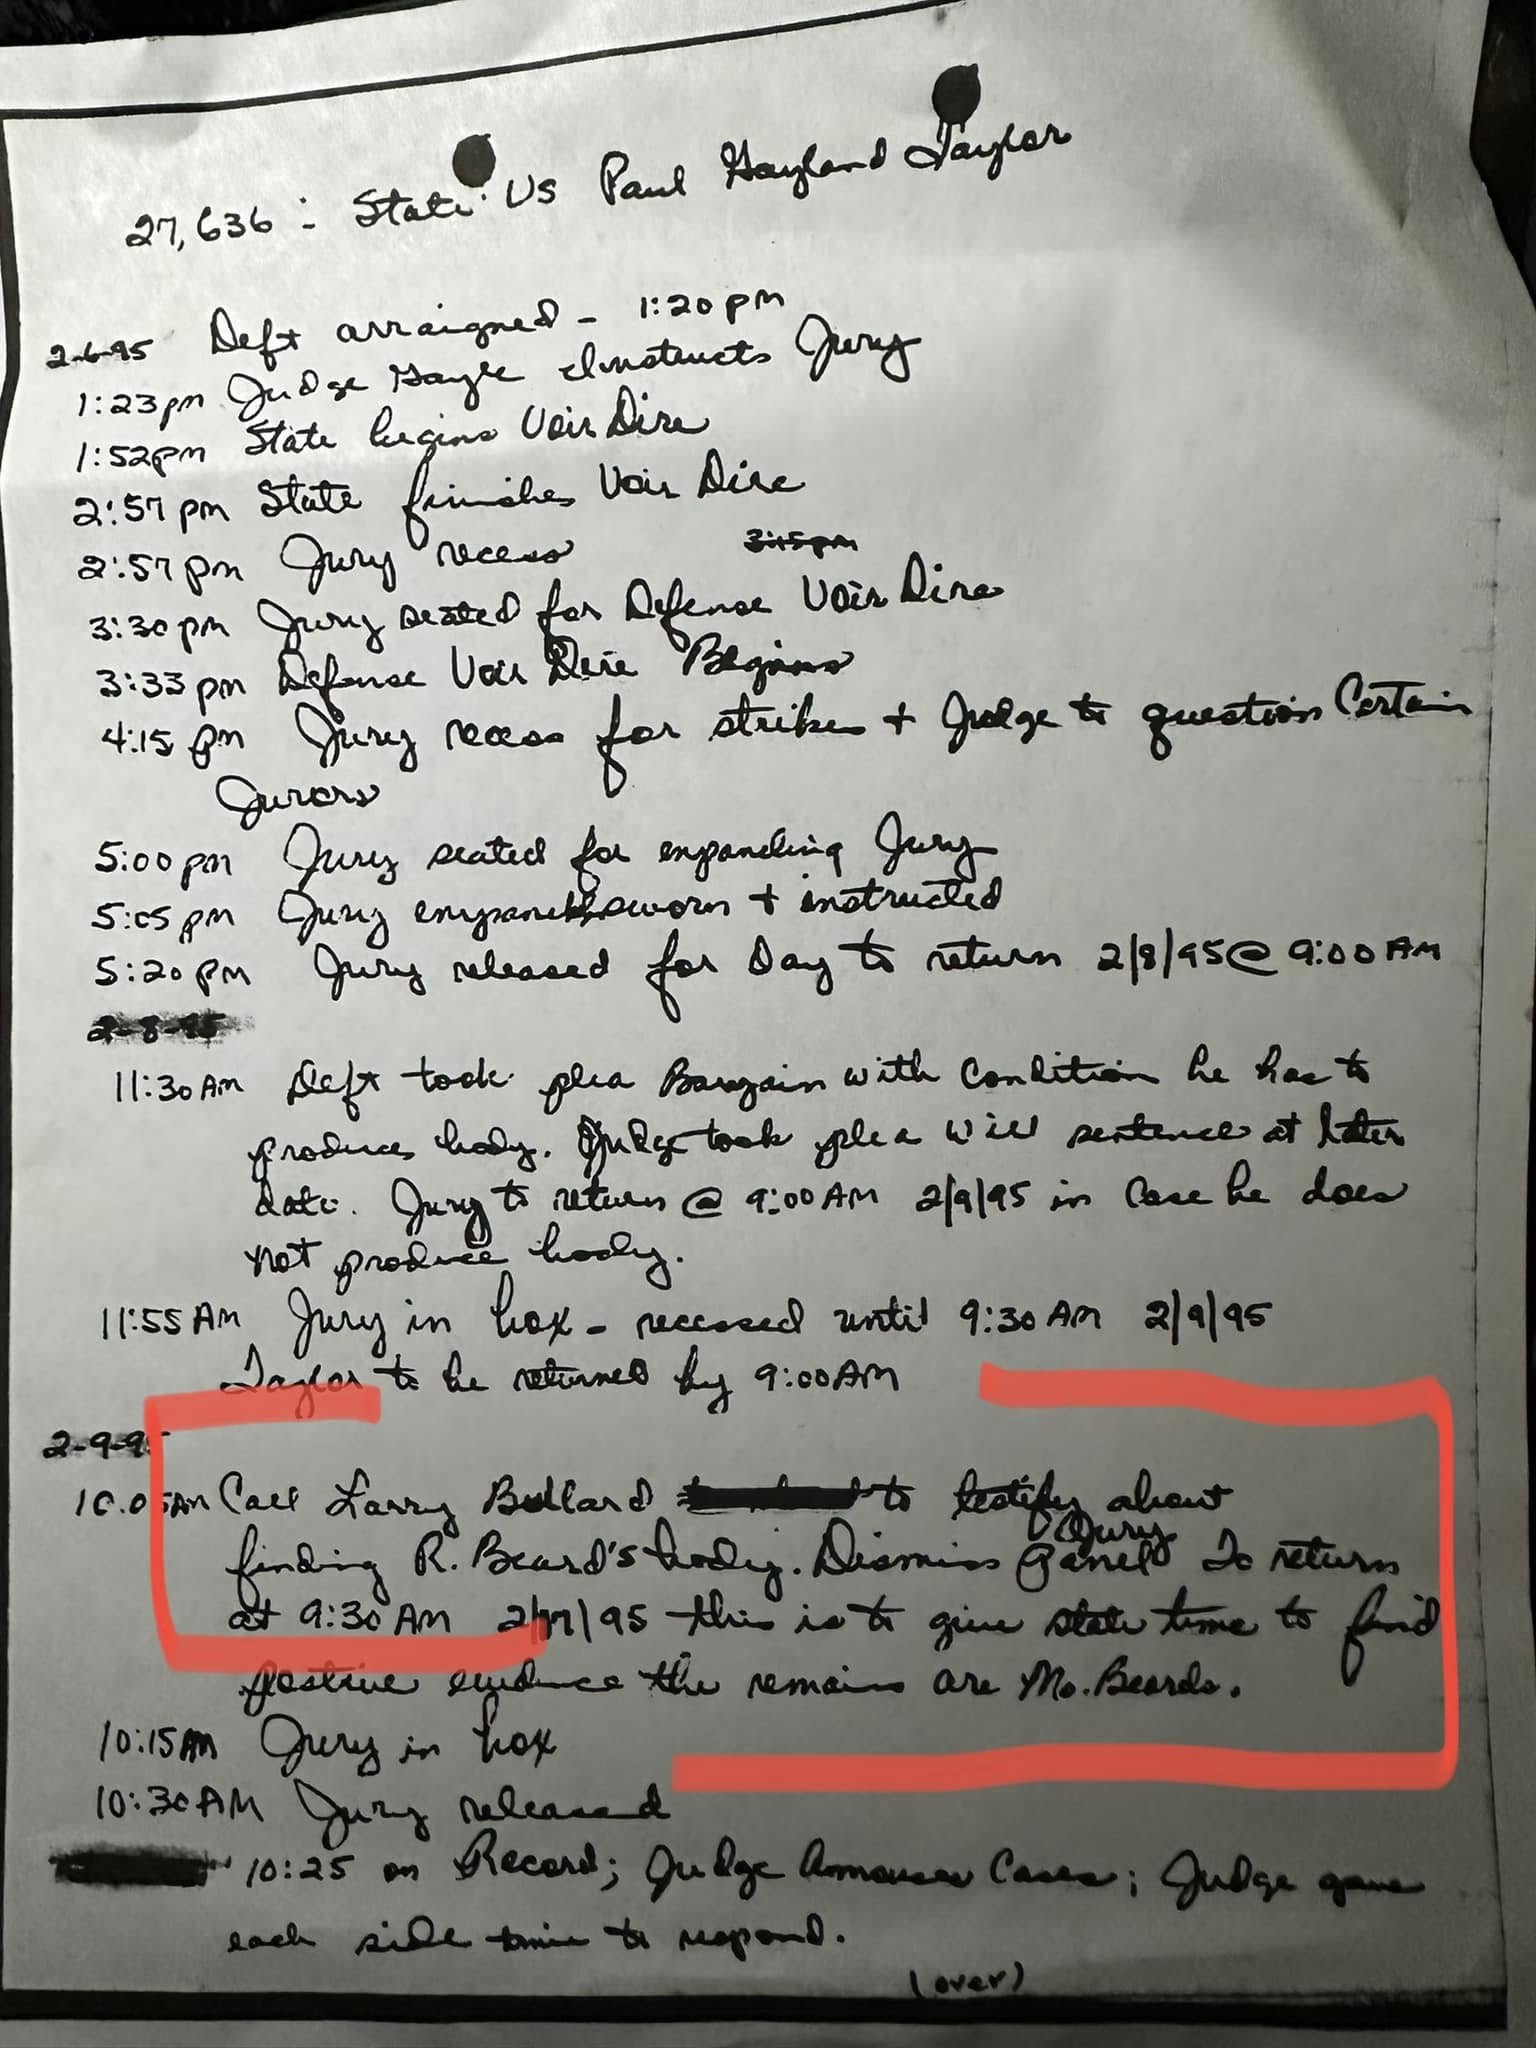 27,636 : State VS Paul Gayland Taylor
2-6-95 Deft arraigned - 1:20 pm
1:23pm Judge Gayle Instructs Jury
1:52pm State begins Voir Dire
2:57 pm State finishes Voir Dire
2:57 pm Jury recess 3:15pm
3:30 pm Jury seated for Defense Voir Dire
3:33 pm Defense Voir Dire Begins
4:15 pm Jury recess for strikes + Judge to question Certain
Jurors
5:00 pm Jury seated for empaneling Jury
5:05 pm Jury sworn + instructed
5:20 pm Jury released for Day to return 2/8/95 @ 9:00 AM
2-8-95
11:30 AM Deft took plea Bargain with Condition he has to
produce body. Judge took plea will sentence at later
date. Jury to return @ 9:00 AM 2/9/95 in Case he does
not produce body.
11:55 AM Jury in box - recessed until 9:30 AM 2/9/95
Taylor to be returned by 9:00 AM
2-9-95
10:05AM Call Larry Bullard to testify about
finding R. Beard's body. Dismiss Jury Panel To return
at 9:30 AM 2/17/95 this is to give state time to find
postive evidence the remains are Ms. Beards.
10:15AM Jury in box
10:30 AM Jury released
10:25 on Record; Judge Announces Cases; Judge gave
each side time to respond.
(over)